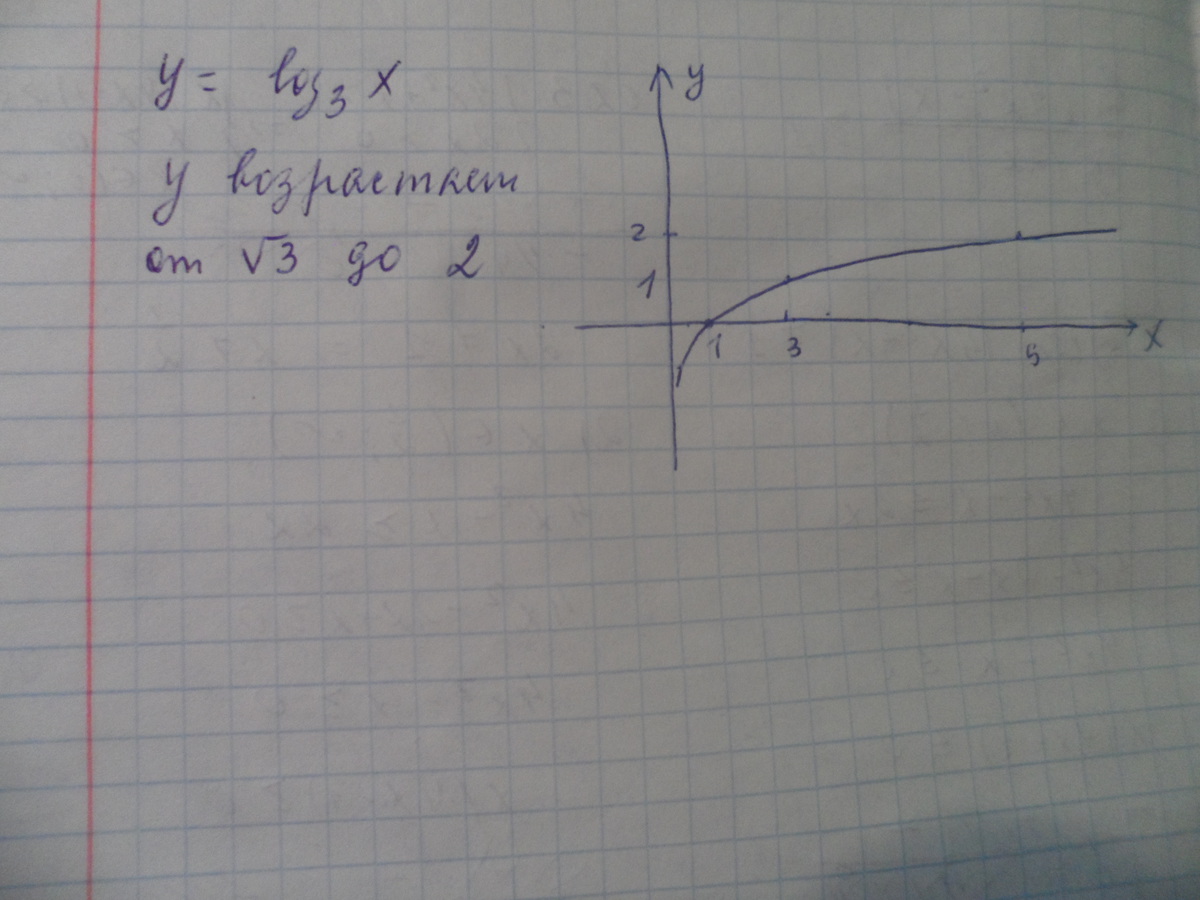 y = log₃ x
y возрастает
от √3 до 2
y
2
1
1 3 5 x